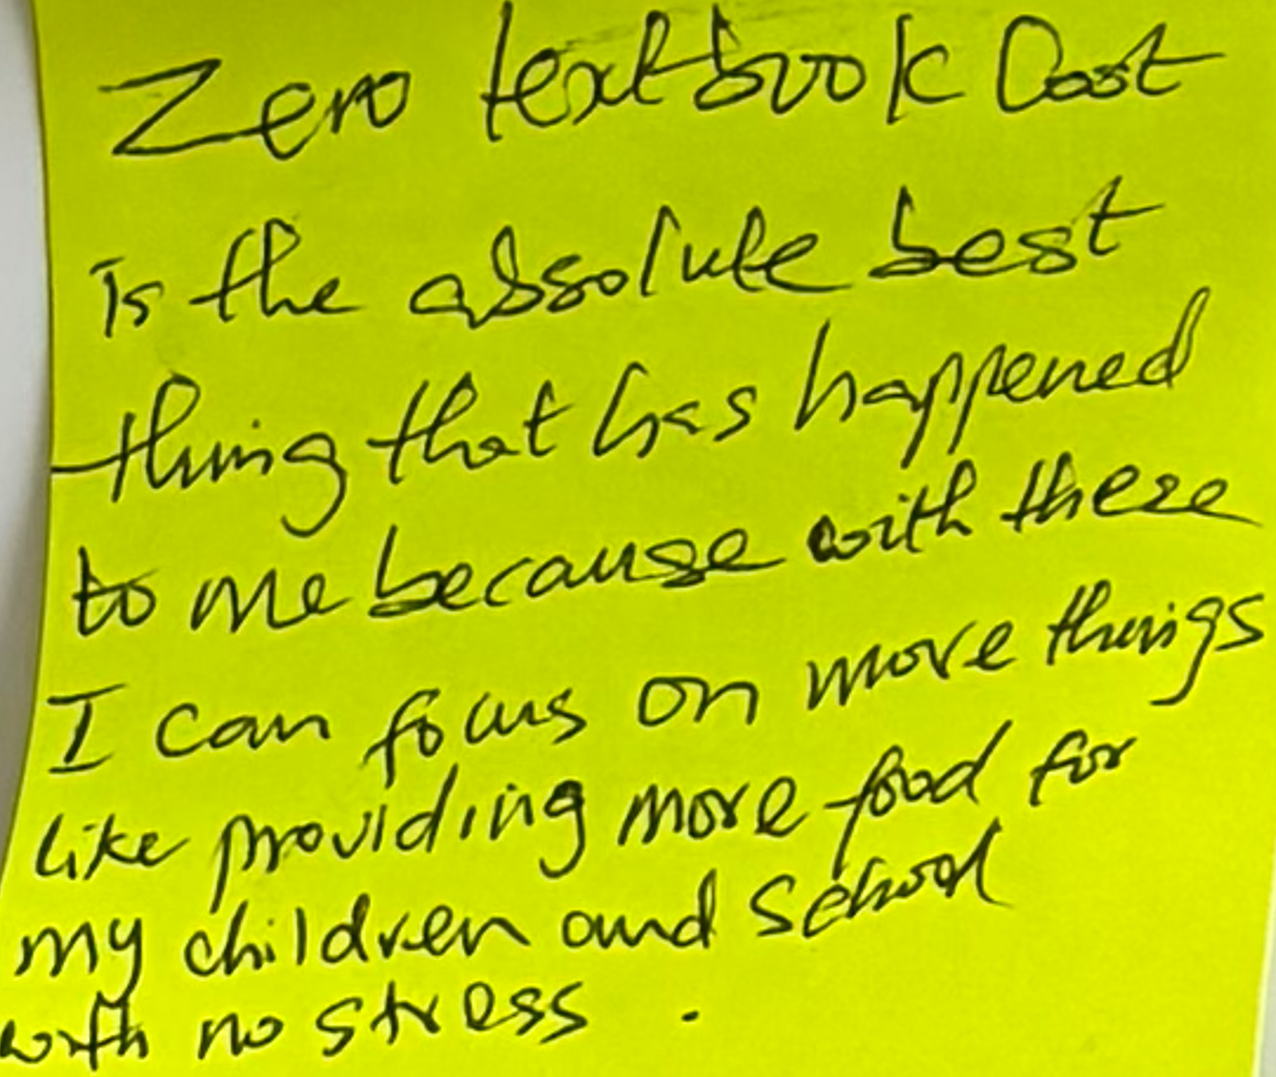 Zero textbook Cost
Is the absolute best
thing that has happened
to me because with these
I can focus on more things
like providing more food for
my children and school
with no stress .